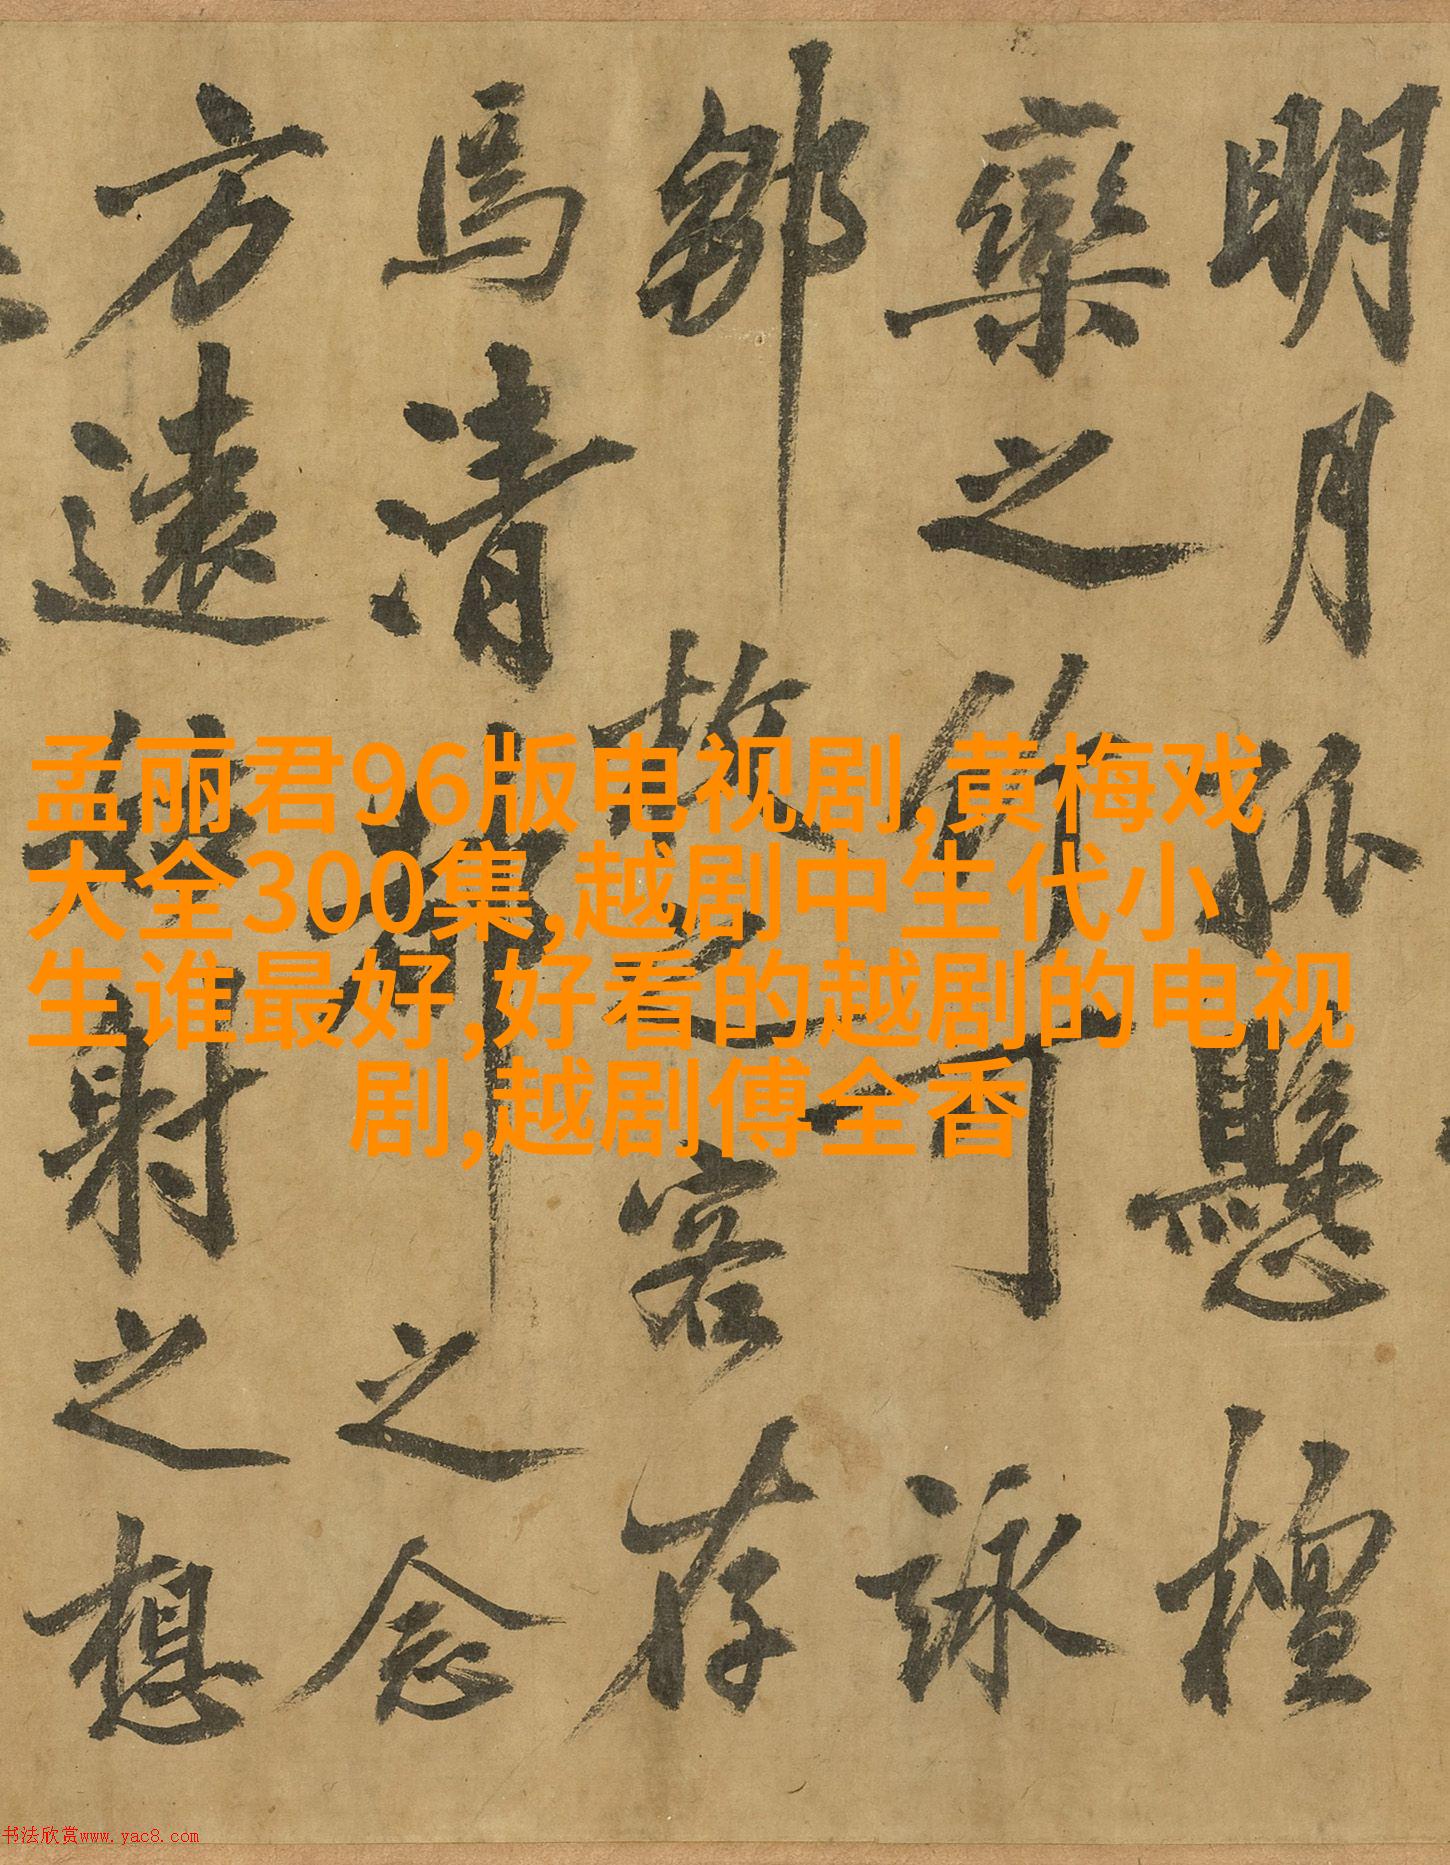 明月孤懸檀
欒之竹可詠
鄒故之客存
馬清都之念
方遠射之想
孟丽君96版电视剧,黄梅戏
大全300集,越剧中生代小
生谁最好,好看的越剧的电视
剧,越剧傅全香
书法欣赏www.yac8.com